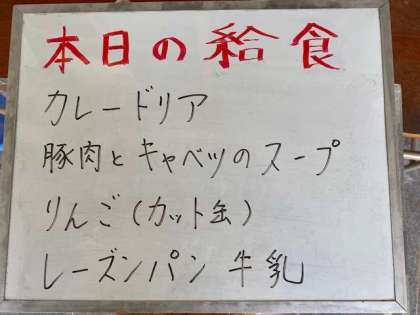 本日の給食
カレードリア
豚肉とキャベツのスープ
りんご(カット缶)
レーズンパン 牛乳